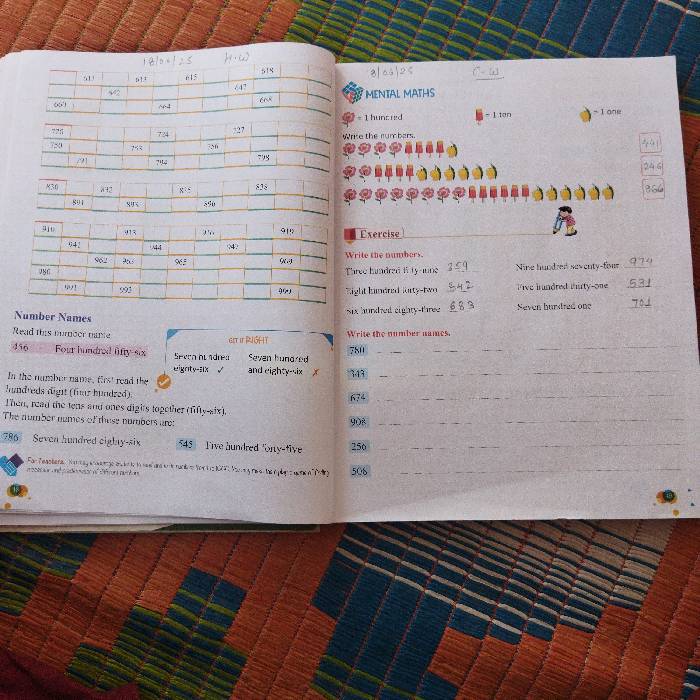 18/06/25 H.W
611 613 615 618
642 647
660 664 668
720 724 727
750 753 756
791 794 798
830 832 835 838
891 893 896
910 913 916 919
941 944 947
962 963 965 969
980
991 993 999
Number Names
Read this number name
456 Four hundred fifty-six
GET IT RIGHT
Seven hundred eighty-six ✓
Seven hundred and eighty-six ✗
In the number name, first read the
hundreds digit (four hundred).
Then, read the tens and ones digits together (fifty-six).
The number names of these numbers are:
786 Seven hundred eighty-six 545 Five hundred forty-five
For Teachers:
18/06/25 C.W
MENTAL MATHS
= 1 hundred = 1 ten = 1 one
Write the numbers.
441
246
866
Exercise
Write the numbers.
Three hundred fifty-nine 359 Nine hundred seventy-four 974
Eight hundred forty-two 842 Five hundred thirty-one 531
Six hundred eighty-three 683 Seven hundred one 701
Write the number names.
780
343
674
908
256
506